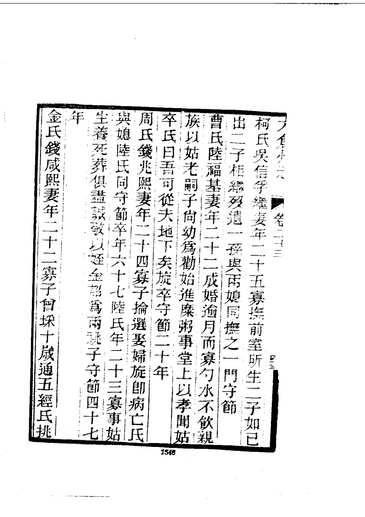 太倉州志 卷二十三
柯氏吳信孚繼妻年二十五寡撫前室所生二子如已
出二子相繼歿遺一孫與兩媳同撫之一門守節
曹氏陸福基妻年二十二成婚逾月而寡勺水不飲親
族以姑老嗣子尙幼爲勸始進糜粥事堂上以孝聞姑
卒氏曰吾可從夫地下矣旋卒守節二十年
周氏錢兆熙妻年二十四寡子掄選娶婦旋卽病亡氏
與媳陸氏同守節卒年六十七陸氏年二十三寡事姑
生養死葬俱盡誠敬以姪金詔爲兩祧子守節四十七
年
金氏錢咸熙妻年二十二寡子曾埰十歲通五經氏挑
1546